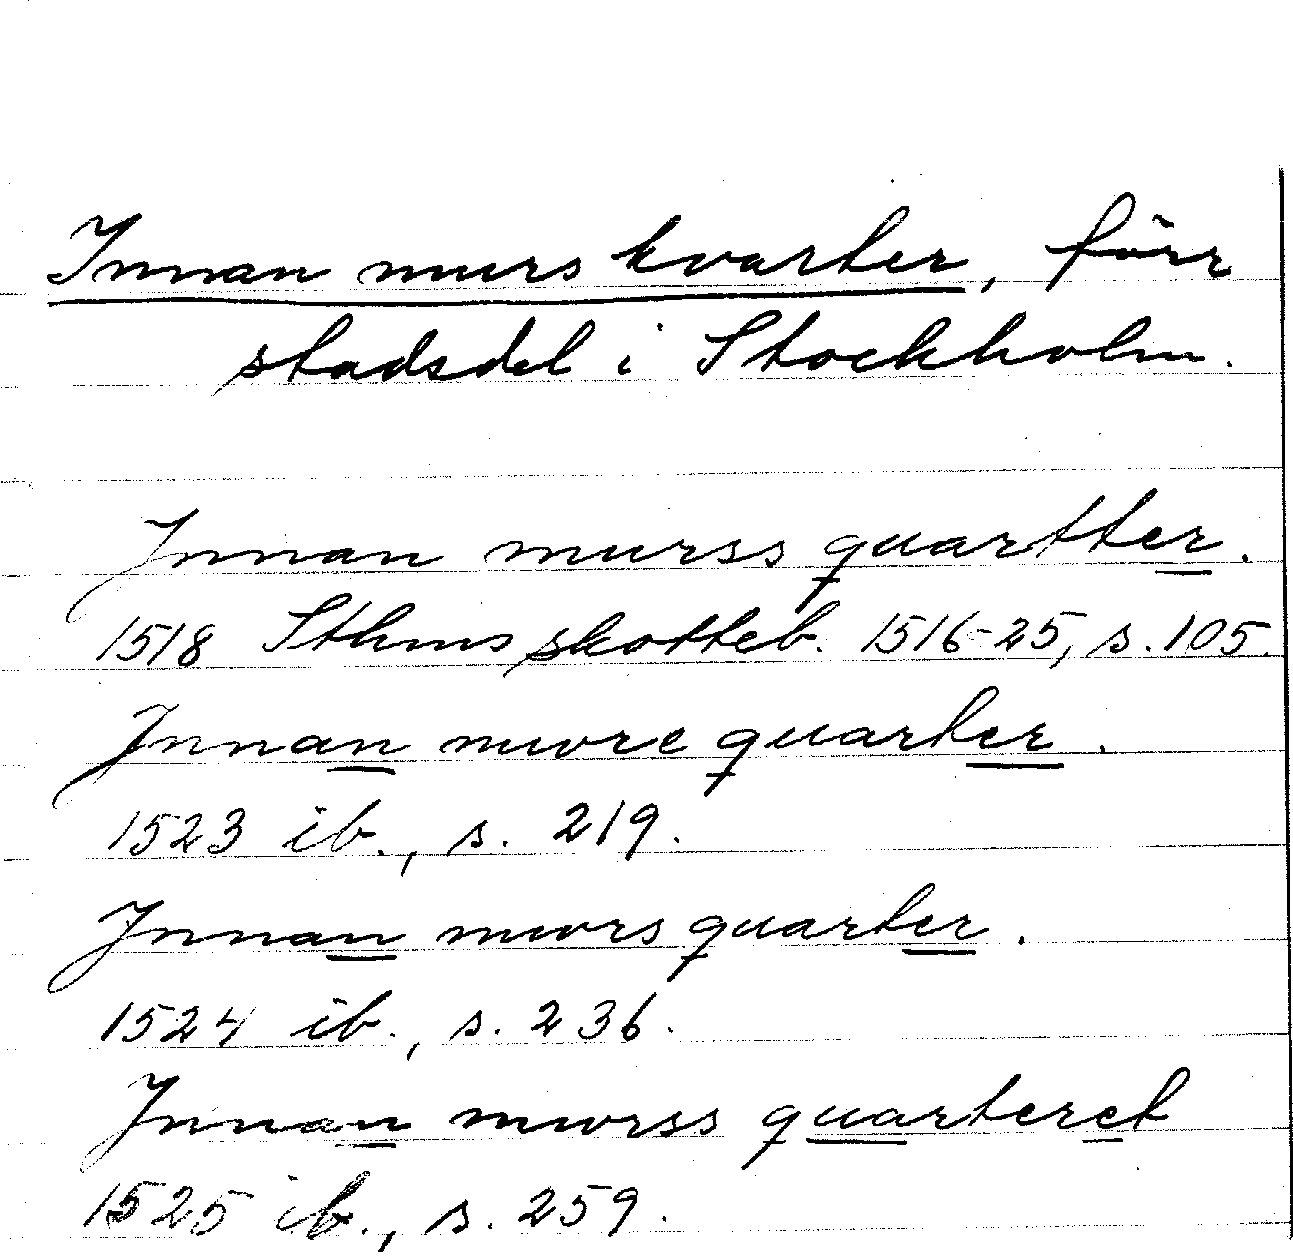 Innan murs kvarter, förr
stadsdel i Stockholm.
Innan murss quartter.
1518 Sthms skotteb. 1516-25, s. 105.
Innan mwre quarter.
1523 ib., s. 219.
Innan mwrs quarter.
1524 ib., s. 236.
Innan mwrss quarteret
1525 ib., s. 259.